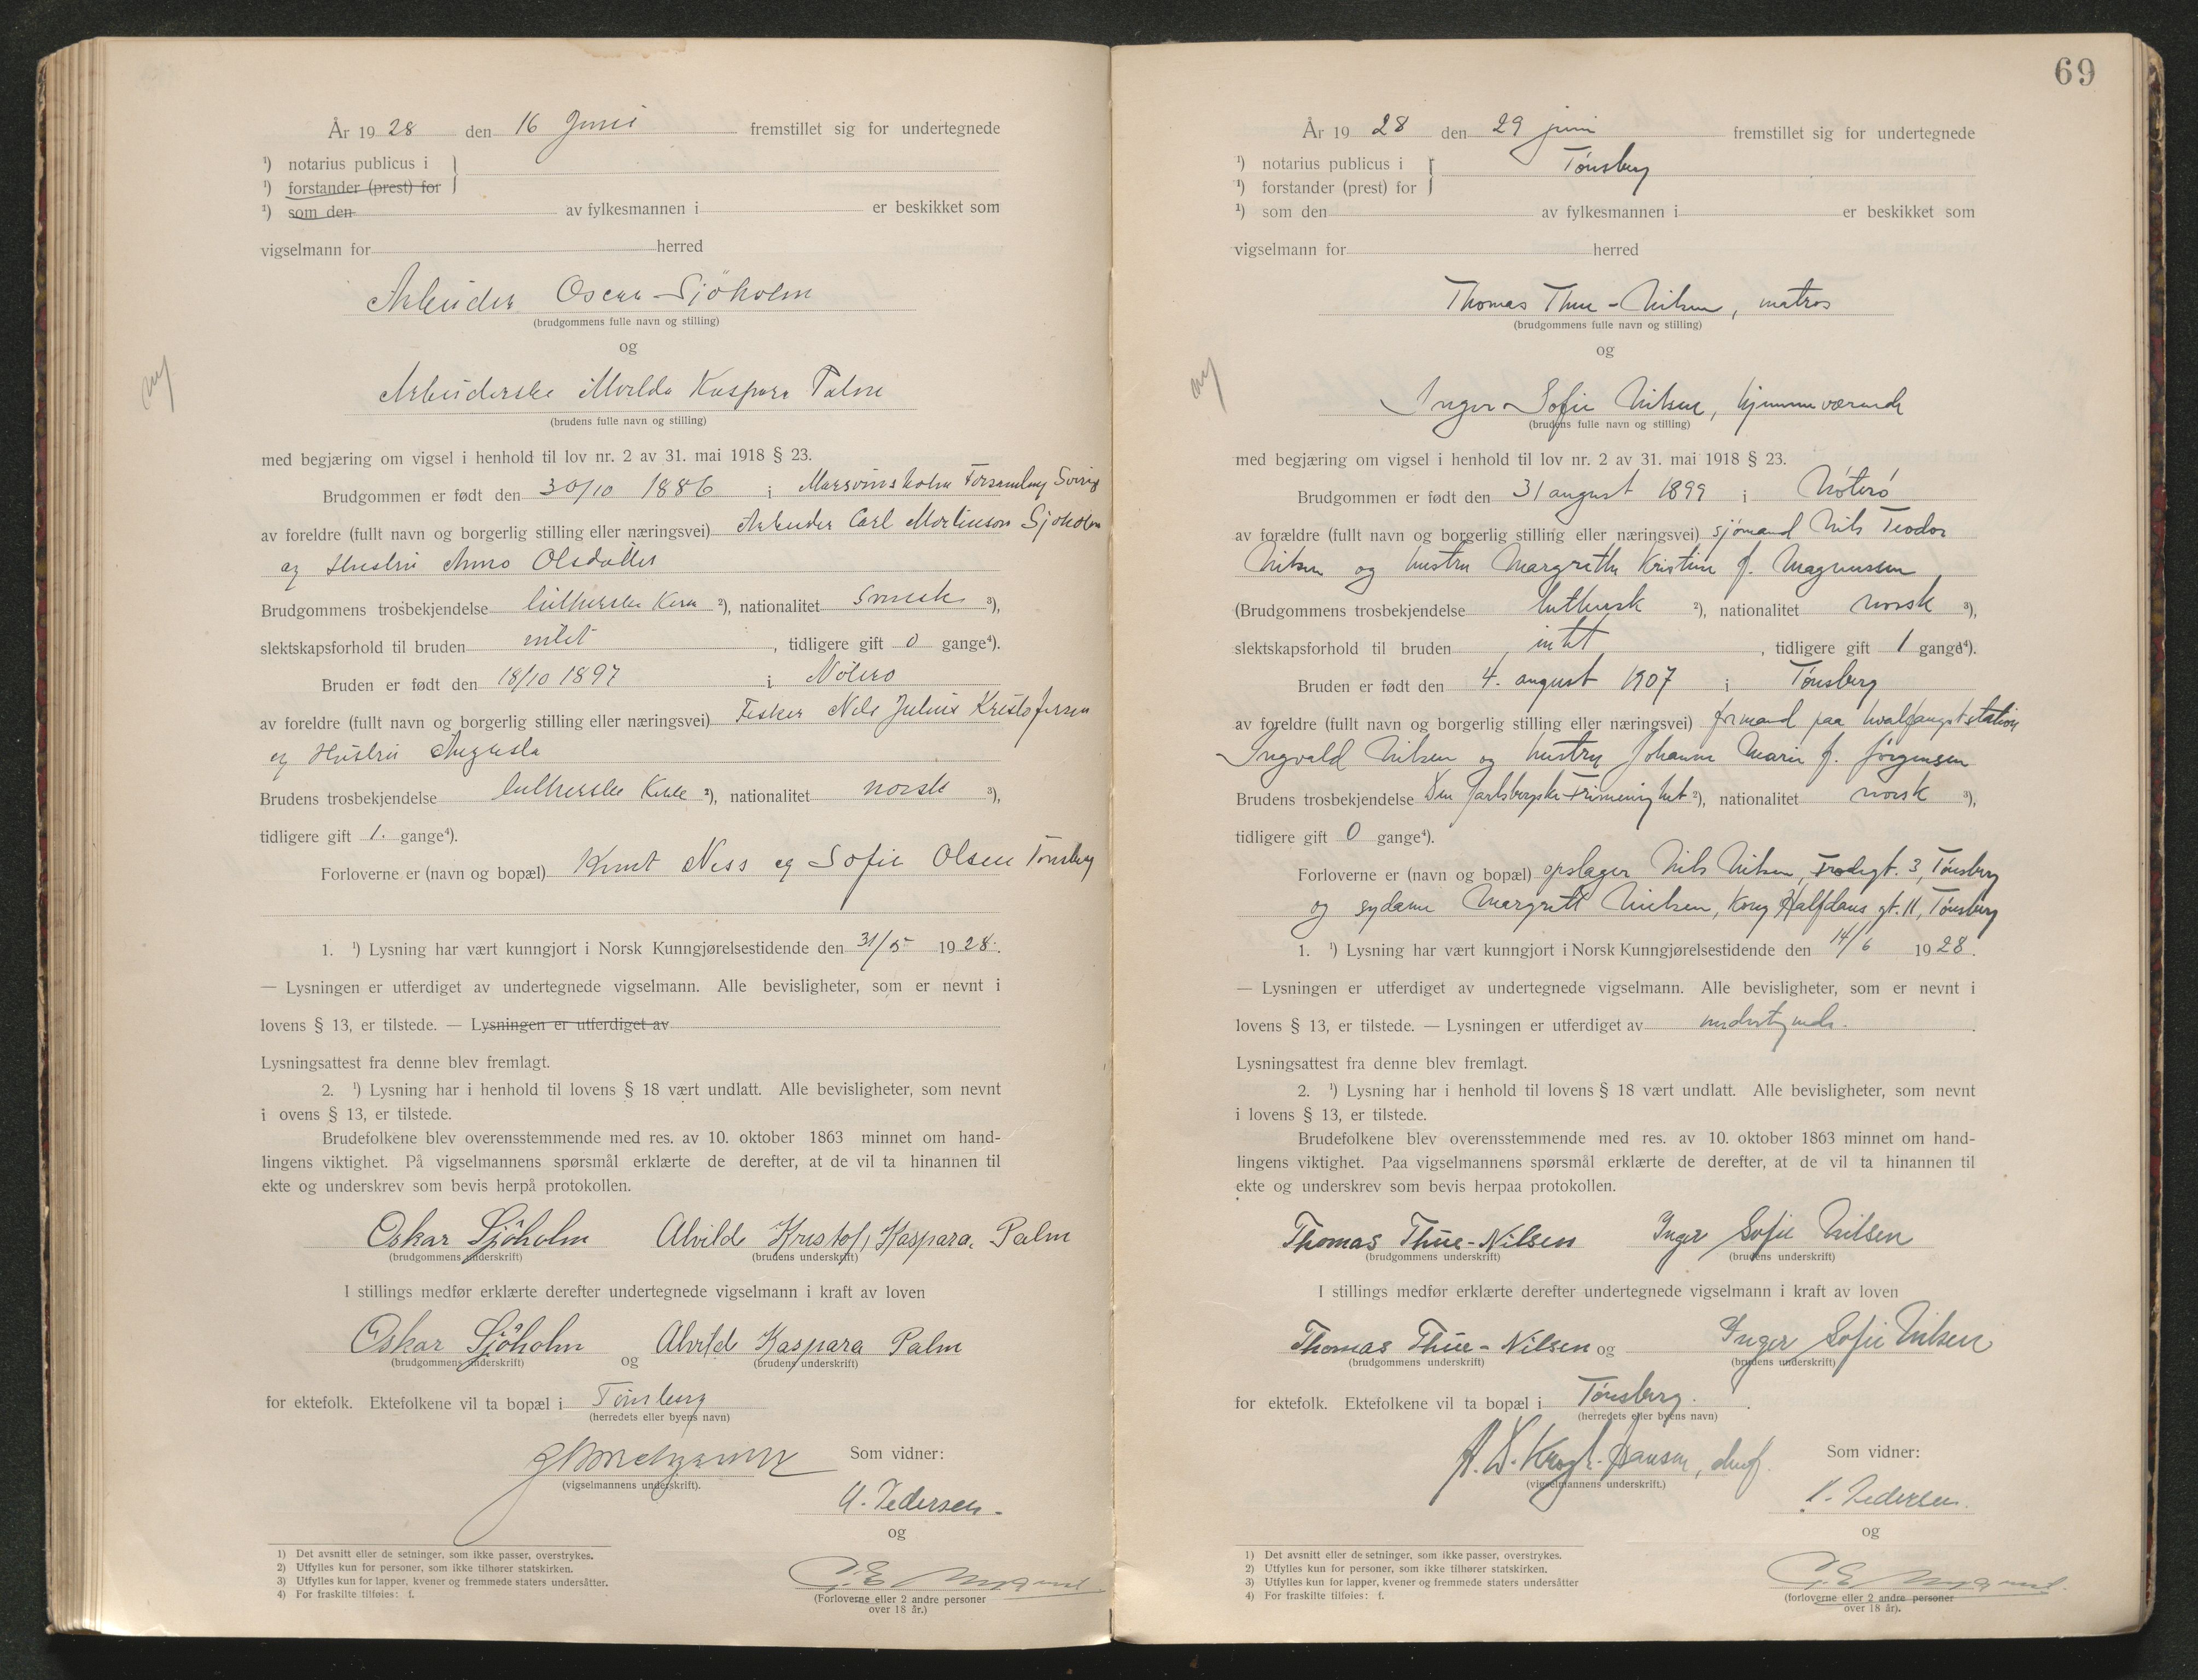 År 19 28 den 16 Juni fremstillet sig for undertegnede
¹) notarius publicus i
¹) forstander (prest) for
¹) som den av fylkesmannen i er beskikket som
vigselmann for herred
Arbeider Oscar Sjöholm
(brudgommens fulle navn og stilling)
og
Arbeiderske Alvilda Kaspara Palm
(brudens fulle navn og stilling)
med begjæring om vigsel i henhold til lov nr. 2 av 31. mai 1918 § 23.
Brudgommen er født den 30/10 1886 i Marsvinsholm Forsamling Sverig
av foreldre (fullt navn og borgerlig stilling eller næringsvei) Arbeider Carl Mortinson Sjøholm
og Hustru Anna Olsdatter
Brudgommens trosbekjendelse lutherske ²), nationalitet svensk ³),
slektskapsforhold til bruden intet, tidligere gift 0 gange⁴).
Bruden er født den 18/10 1897 i Nøtterø
av foreldre (fullt navn og borgerlig stilling eller næringsvei) Fisker Nils Julius Kristofersen
og Hustru Augusta
Brudens trosbekjendelse lutherske Kirke ²), nationalitet norsk ³),
tidligere gift 1. gange⁴).
Forloverne er (navn og bopæl) Knut Ness og Sofie Olsen Tønsberg
1. ¹) Lysning har vært kunngjort i Norsk Kunngjørelsestidende den 31/5 1928.
— Lysningen er utferdiget av undertegnede vigselmann. Alle bevisligheter, som er nevnt i
lovens § 13, er tilstede. — Lysningen er utferdiget av
Lysningsattest fra denne blev fremlagt.
2. ¹) Lysning har i henhold til lovens § 18 vært undlatt. Alle bevisligheter, som nevnt
i ovens § 13, er tilstede.
Brudefolkene blev overensstemmende med res. av 10. oktober 1863 minnet om hand-
lingens viktighet. På vigselmannens spørsmål erklærte de derefter, at de vil ta hinannen til
ekte og underskrev som bevis herpå protokollen.
Oskar Sjöholm Alvilde Kristof, Kaspara, Palm
(brudgommens underskrift) (brudens underskrift)
I stillings medfør erklærte derefter undertegnede vigselmann i kraft av loven
Oskar Sjöholm og Alvild Kaspara Palm
(brudgommens underskrift) (brudens underskrift)
for ektefolk. Ektefolkene vil ta bopæl i Tønsberg
(herredets eller byens navn)
Som vidner:
(vigselmannens underskrift).
A. Pedersen.
og
(Forloverne eller 2 andre personer
over 18 år.)
1) Det avsnitt eller de setninger, som ikke passer, overstrykes.
2) Utfylles kun for personer, som ikke tilhører statskirken.
3) Utfylles kun for lapper, kvener og fremmede staters undersåtter.
4) For fraskilte tilføies: f.
69
År 19 28 den 29 juni fremstillet sig for undertegnede
¹) notarius publicus i Tønsberg
¹) forstander (prest) for
¹) som den av fylkesmannen i er beskikket som
vigselmann for herred
Thomas Thue-Nilsen, matros
(brudgommens fulle navn og stilling)
og
Inger Sofie Nilsen, hjemmeværende
(brudens fulle navn og stilling)
med begjæring om vigsel i henhold til lov nr. 2 av 31. mai 1918 § 23.
Brudgommen er født den 31 august 1899 i Nøterø
av forældre (fullt navn og borgerlig stilling eller næringsvei) sjømand Nils Teodor
Nilsen og hustru Margrethe Kristine f. Magnussen
(Brudgommens trosbekjendelse luthersk ²), nationalitet norsk ³),
slektskapsforhold til bruden intet, tidligere gift 1 gange⁴).
Bruden er født den 4. august 1907 i Tønsberg
av foreldre (fullt navn og borgerlig stilling eller næringsvei) formand paa hvalfangststation
Ingvald Nilsen og hustru Johanne Marie f. Jørgensen
Brudens trosbekjendelse Den Jarlsbergske Frimenighet ²), nationalitet norsk ³),
tidligere gift 0 gange⁴).
Forloverne er (navn og bopæl) opslager Nils Nilsen, Frodegt. 3, Tønsberg
og sydame Margrett Nielsen, Kong Halfdans gt. 11, Tønsberg
1. ¹) Lysning har vært kunngjort i Norsk Kunngjørelsestidende den 14/6 1928.
— Lysningen er utferdiget av undertegnede vigselmann. Alle bevisligheter, som er nevnt i
lovens § 13, er tilstede. — Lysningen er utferdiget av undertegnede.
Lysningsattest fra denne blev fremlagt.
2. ¹) Lysning har i henhold til lovens § 18 vært undlatt. Alle bevisligheter, som nevnt
i lovens § 13, er tilstede.
Brudefolkene blev overensstemmende med res. av 10. oktober 1863 minnet om hand-
lingens viktighet. Paa vigselmannens spørsmål erklærte de derefter, at de vil ta hinannen til
ekte og underskrev som bevis herpaa protokollen.
Thomas Thue-Nilsen Inger Sofie Nilsen
(brudgommens underskrift) (brudens underskrift)
I stillings medfør erklærte derefter undertegnede vigselmann i kraft av loven
Thomas Thue-Nilsen og Inger Sofie Nilsen
(brudgommens underskrift) (brudens underskrift)
for ektefolk. Ektefolkene vil ta bopæl i Tønsberg.
(herredets eller byens navn)
A. D. Krogh-Hansen, Som vidner:
(vigselmannens underskrift.)
A. Pedersen.
og
(forloverne eller 2 andre personer
over 18 år).
1) Det avsnitt eller de setninger, som ikke passer, overstrykes.
2) Utfylles kun for personer, som ikke tilhører statskirken.
3) Utfylles kun for lapper, kvener og fremmede staters undersåtter
4) For fraskilte tilføies: f.